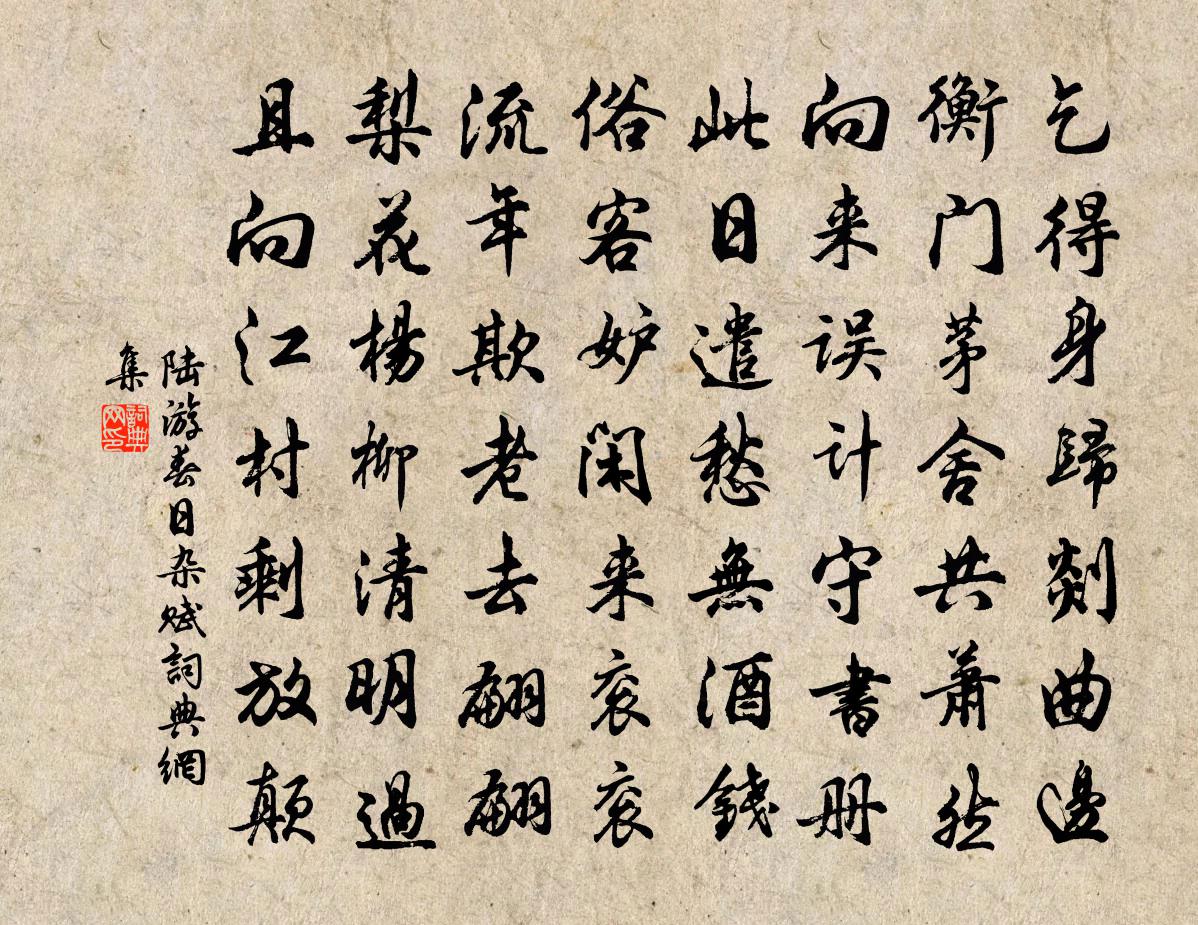 乞得身歸剡曲邊
衡門茅舍共蕭然
向来误计守書册
此日遣愁無酒錢
俗客妒闲来衮衮
流年欺老去翩翩
梨花楊柳清明過
且向江村剩放顛
陆游春日杂赋詞典網
集
詞典网印